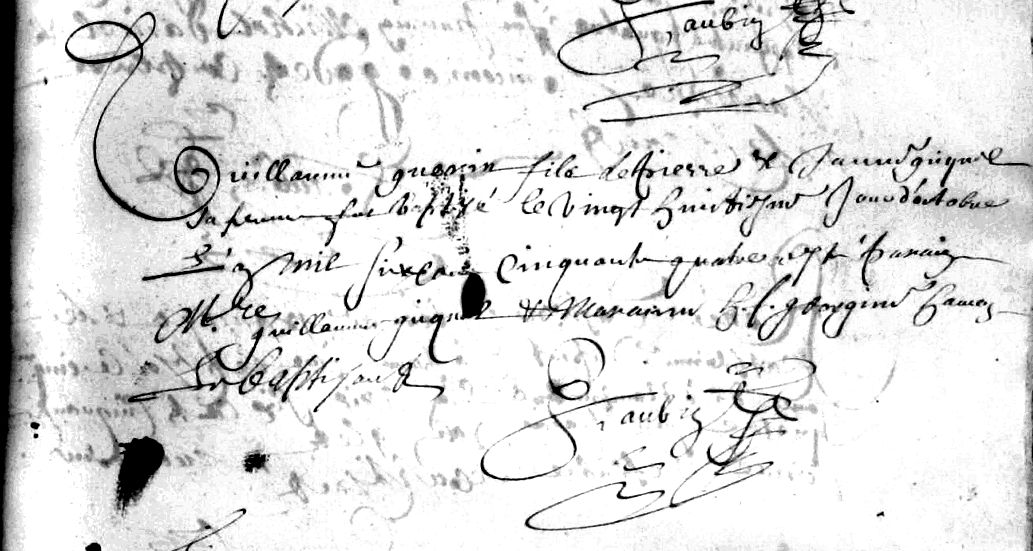 F. aubin
Guillaume guerin fils de Pierre & Janne guiguel
sa femme fut baptizé le vingt huictiesme Jour d'octobre
mil six cens cinquante quatre et parain
M.re guillaume guiguel & Maraine h. f.
le baptisant
F. aubin